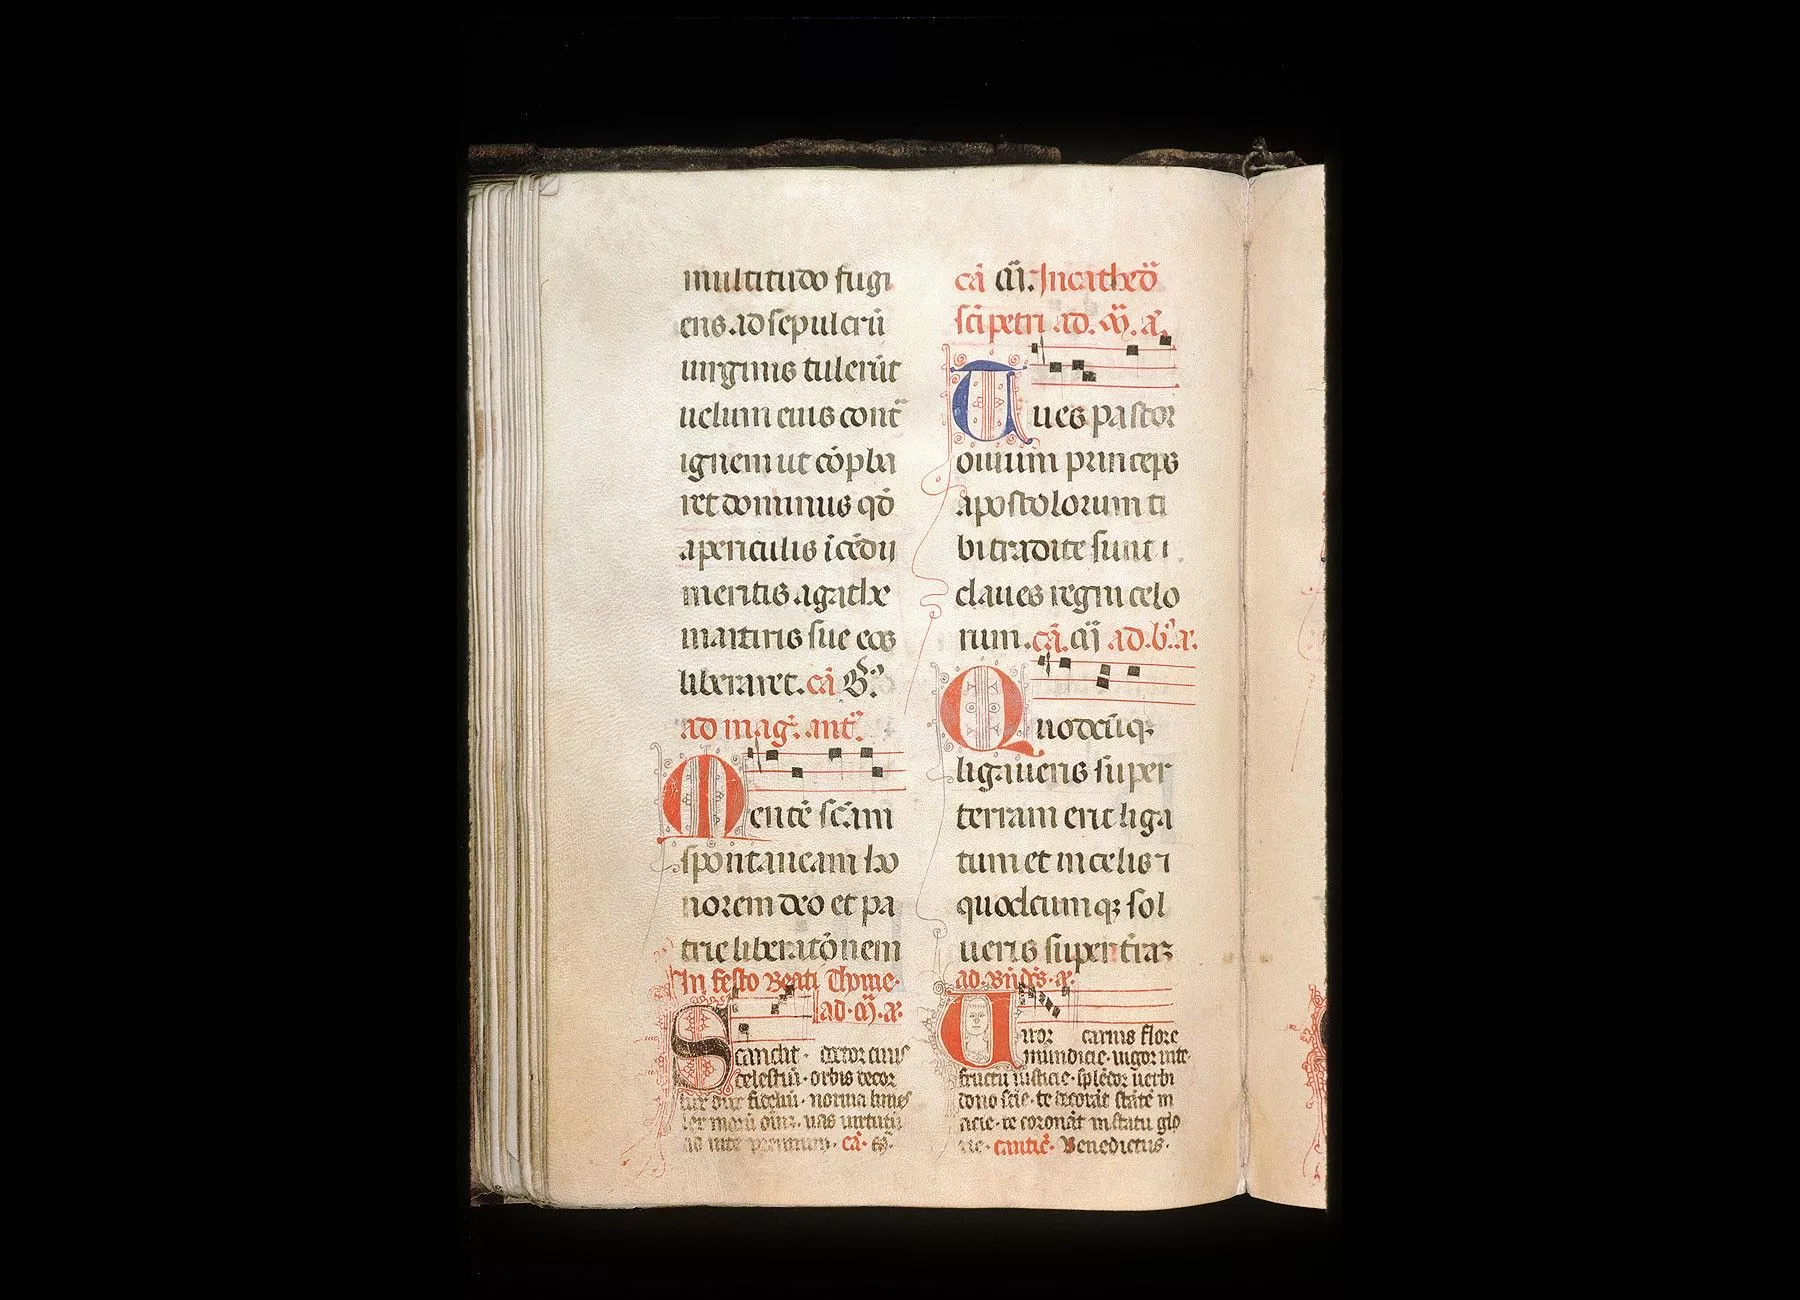 multitudo fugi
ens ad sepulcrū
uirginis tulerūt
uelum eius cont̄
ignem ut cōpba
ret dominus qđ
a periculis īcēdii
meritis agathe
martiris sue eos
liberaret. cā B.
ad mag. ant.
Mente scām
spontaneam ho
norem deo et pa
trie liberatōnem
In festo Beati Thome
ad. m̄. a.
Scandit. doctor cuius
celestiū. orbis decor
lux dux fideliū. norma limes
lex morū oīuz. uas uirtutū
ad uite premium. cā. m̄.
cā m̄. In cathed̄
sc̄i petri ad. m̄. a.
Tu es pastor
ouium princeps
apostolorum ti
bi tradite sunt
claues regni celo
rum. cā. m̄ ad. b. a.
Quodcūq;
ligaueris super
terram erit liga
tum et in celis ⁊
quodcumq; sol
ueris super t̄raz
ad. Bn̄dc̄s. a.
carnis flore
mundicie. uigor inte
fructu iusticie. splēdor uerbi
dono scīe. te decorāt state in
acie. te coronāt in statu glo
rie. cantic. Benedictus.